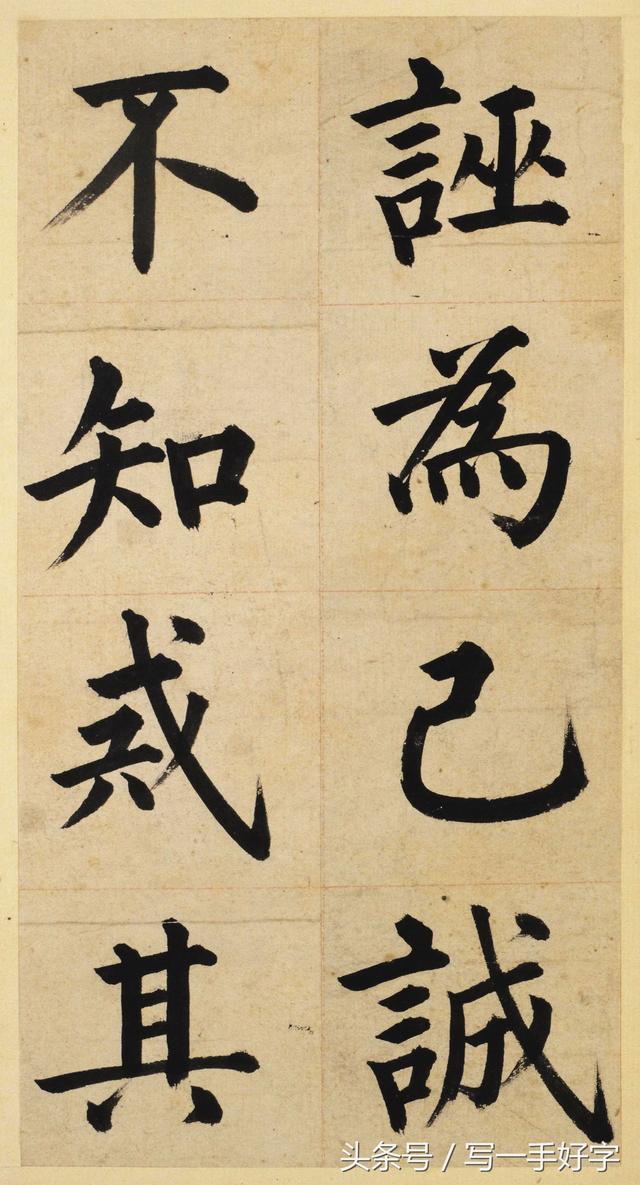 誣為己誠
不知戒其
头条号 / 写一手好字